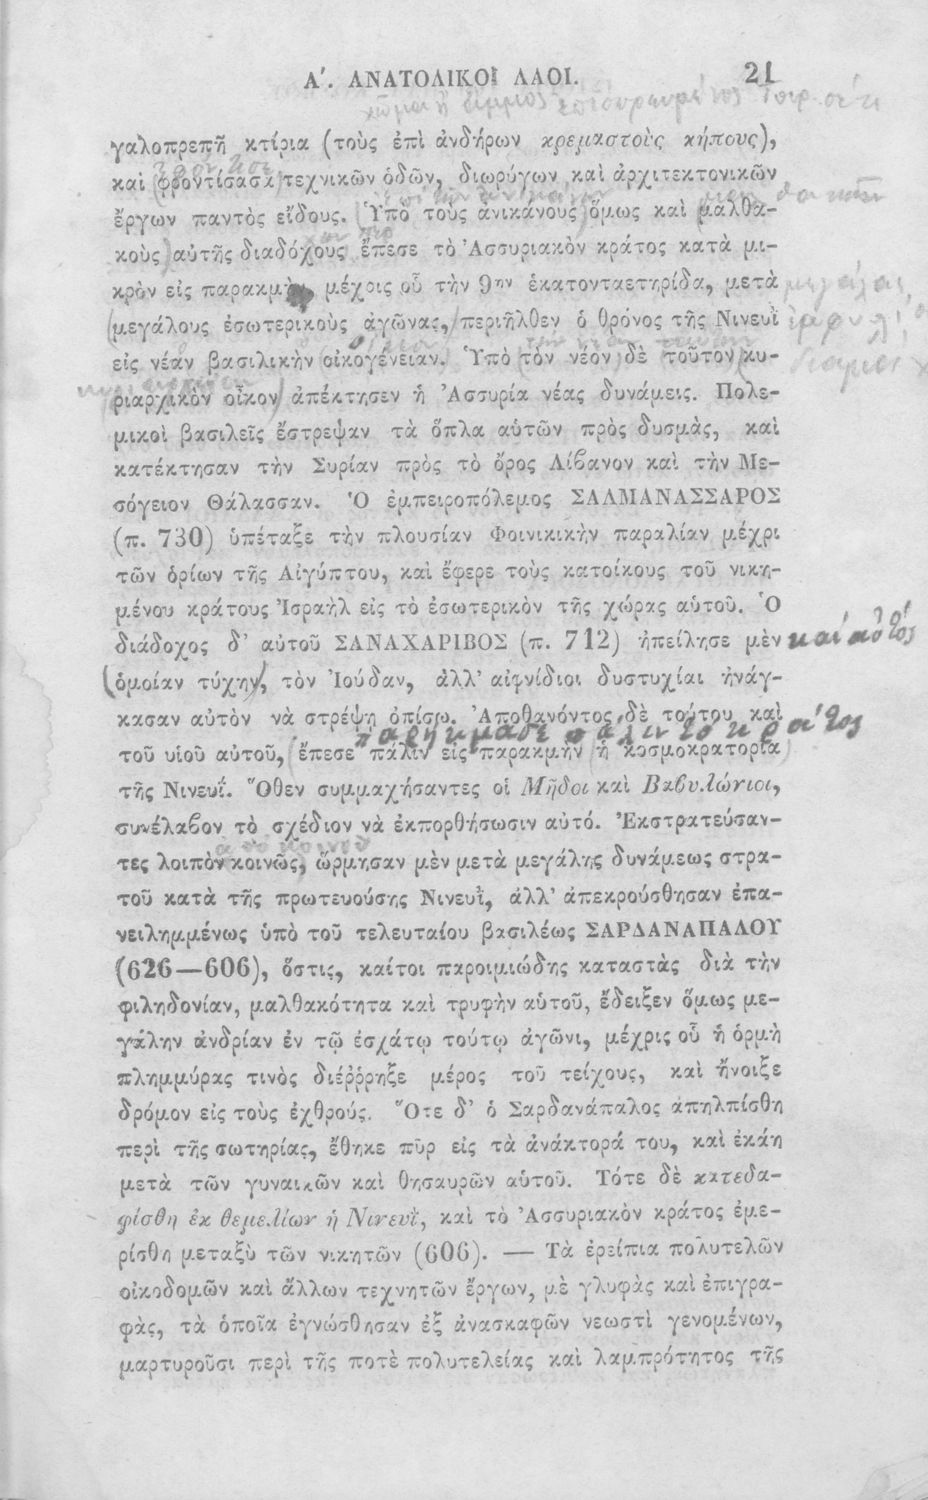 Α΄. ΑΝΑΤΟΛΙΚΟΙ ΛΑΟΙ. 21
γαλοπρεπῆ κτίρια (τοὺς ἐπὶ ἀνδήρων κρεμαστοὺς κήπους),
καὶ φροντίσασα τεχνικῶν ὁδῶν, διωρύγων καὶ ἀρχιτεκτονικῶν
ἔργων παντὸς εἴδους. Ὑπὸ τοὺς ἀνικάνους ὅμως καὶ μαλθα-
κοὺς αὐτῆς διαδόχους ἔπεσε τὸ Ἀσσυριακὸν κράτος κατὰ μι-
κρὸν εἰς παρακμὴν, μέχρις οὗ τὴν 9ην ἑκατονταετηρίδα, μετὰ
(μεγάλους ἐσωτερικοὺς ἀγῶνας, περιῆλθεν ὁ θρόνος τῆς Νινευῒ
εἰς νέαν βασιλικὴν οἰκογένειαν. Ὑπὸ τὸν νέον δὲ τοῦτον κυ-
ριαρχικὸν οἶκον) ἀπέκτησεν ἡ Ἀσσυρία νέας δυνάμεις. Πολε-
μικοὶ βασιλεῖς ἔστρεψαν τὰ ὅπλα αὑτῶν πρὸς δυσμὰς, καὶ
κατέκτησαν τὴν Συρίαν πρὸς τὸ ὄρος Λίβανον καὶ τὴν Με-
σόγειον Θάλασσαν. Ὁ ἐμπειροπόλεμος ΣΑΛΜΑΝΑΣΣΑΡΟΣ
(π. 730) ὑπέταξε τὴν πλουσίαν Φοινικικὴν παραλίαν μέχρι
τῶν ὁρίων τῆς Αἰγύπτου, καὶ ἔφερε τοὺς κατοίκους τοῦ νικη-
μένου κράτους Ἰσραὴλ εἰς τὸ ἐσωτερικὸν τῆς χώρας αὑτοῦ. Ὁ
διάδοχος δ' αὐτοῦ ΣΑΝΑΧΑΡΙΒΟΣ (π. 712) ἠπείλησε μὲν καί αὐτός
(ὁμοίαν τύχην), τὸν Ἰούδαν, ἀλλ' αἰφνίδιοι δυστυχίαι ἠνάγ-
κασαν αὐτὸν νὰ στρέψῃ ὀπίσω. Ἀποθανόντος δὲ τούτου καὶ
παρήκμασε πάλιν τὸ κράτος
τοῦ υἱοῦ αὐτοῦ, (ἔπεσε πάλιν εἰς παρακμὴν ἡ κοσμοκρατορία)
τῆς Νινευΐ. Ὅθεν συμμαχήσαντες οἱ Μῆδοι καὶ Βαβυλώνιοι,
συνέλαβον τὸ σχέδιον νὰ ἐκπορθήσωσιν αὐτό. Ἐκστρατεύσαν-
ἀπὸ κοινοῦ
τες λοιπὸν κοινῶς, ὥρμησαν μὲν μετὰ μεγάλης δυνάμεως στρα-
τοῦ κατὰ τῆς πρωτευούσης Νινευῒ, ἀλλ' ἀπεκρούσθησαν ἐπα-
νειλημμένως ὑπὸ τοῦ τελευταίου βασιλέως ΣΑΡΔΑΝΑΠΑΛΟΥ
(626—606), ὅστις, καίτοι παροιμιώδης καταστὰς διὰ τὴν
φιληδονίαν, μαλθακότητα καὶ τρυφὴν αὑτοῦ, ἔδειξεν ὅμως με-
γάλην ἀνδρίαν ἐν τῷ ἐσχάτῳ τούτῳ ἀγῶνι, μέχρις οὗ ἡ ὁρμὴ
πλημμύρας τινὸς διέῤῥηξε μέρος τοῦ τείχους, καὶ ἤνοιξε
δρόμον εἰς τοὺς ἐχθρούς. Ὅτε δ' ὁ Σαρδανάπαλος ἀπηλπίσθη
περὶ τῆς σωτηρίας, ἔθηκε πῦρ εἰς τὰ ἀνάκτορά του, καὶ ἐκάη
μετὰ τῶν γυναικῶν καὶ θησαυρῶν αὑτοῦ. Τότε δὲ κατεδα-
φίσθη ἐκ θεμελίων ἡ Νινευῒ, καὶ τὸ Ἀσσυριακὸν κράτος ἐμε-
ρίσθη μεταξὺ τῶν νικητῶν (606). — Τὰ ἐρείπια πολυτελῶν
οἰκοδομῶν καὶ ἄλλων τεχνητῶν ἔργων, μὲ γλυφὰς καὶ ἐπιγρα-
φὰς, τὰ ὁποῖα ἐγνώσθησαν ἐξ ἀνασκαφῶν νεωστὶ γενομένων,
μαρτυροῦσι περὶ τῆς ποτὲ πολυτελείας καὶ λαμπρότητος τῆς